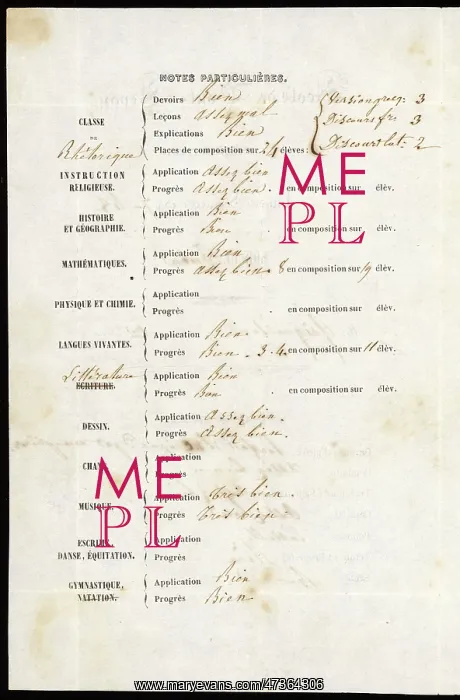 NOTES PARTICULIÈRES.
CLASSE
DE
Rhétorique
Devoirs Bien
Leçons assez
Explications Bien
Places de composition sur 24 élèves:
Version grecq: 3
Discours fr: 3
Discours lat: 2
INSTRUCTION RELIGIEUSE.
Application Assez bien
Progrès Assez bien. en composition sur élèv.
HISTOIRE ET GÉOGRAPHIE.
Application Bien
Progrès Bien en composition sur élèv.
MATHÉMATIQUES.
Application Bien
Progrès assez bien. 8 en composition sur 19 élèv.
PHYSIQUE ET CHIMIE.
Application
Progrès en composition sur élèv.
LANGUES VIVANTES.
Application Bien.
Progrès Bien. 3.4. en composition sur 11 élèv.
Littérature
ECRITURE.
Application Bien
Progrès Bien en composition sur élèv.
DESSIN.
Application Assez bien.
Progrès Assez bien.
CHANT
Application
Progrès
MUSIQUE.
Application Très bien.
Progrès Très bien
ESCRIME, DANSE, ÉQUITATION.
Application
Progrès
GYMNASTIQUE, NATATION.
Application Bien
Progrès Bien
ME
PL
ME
PL
www.maryevans.com/47364306